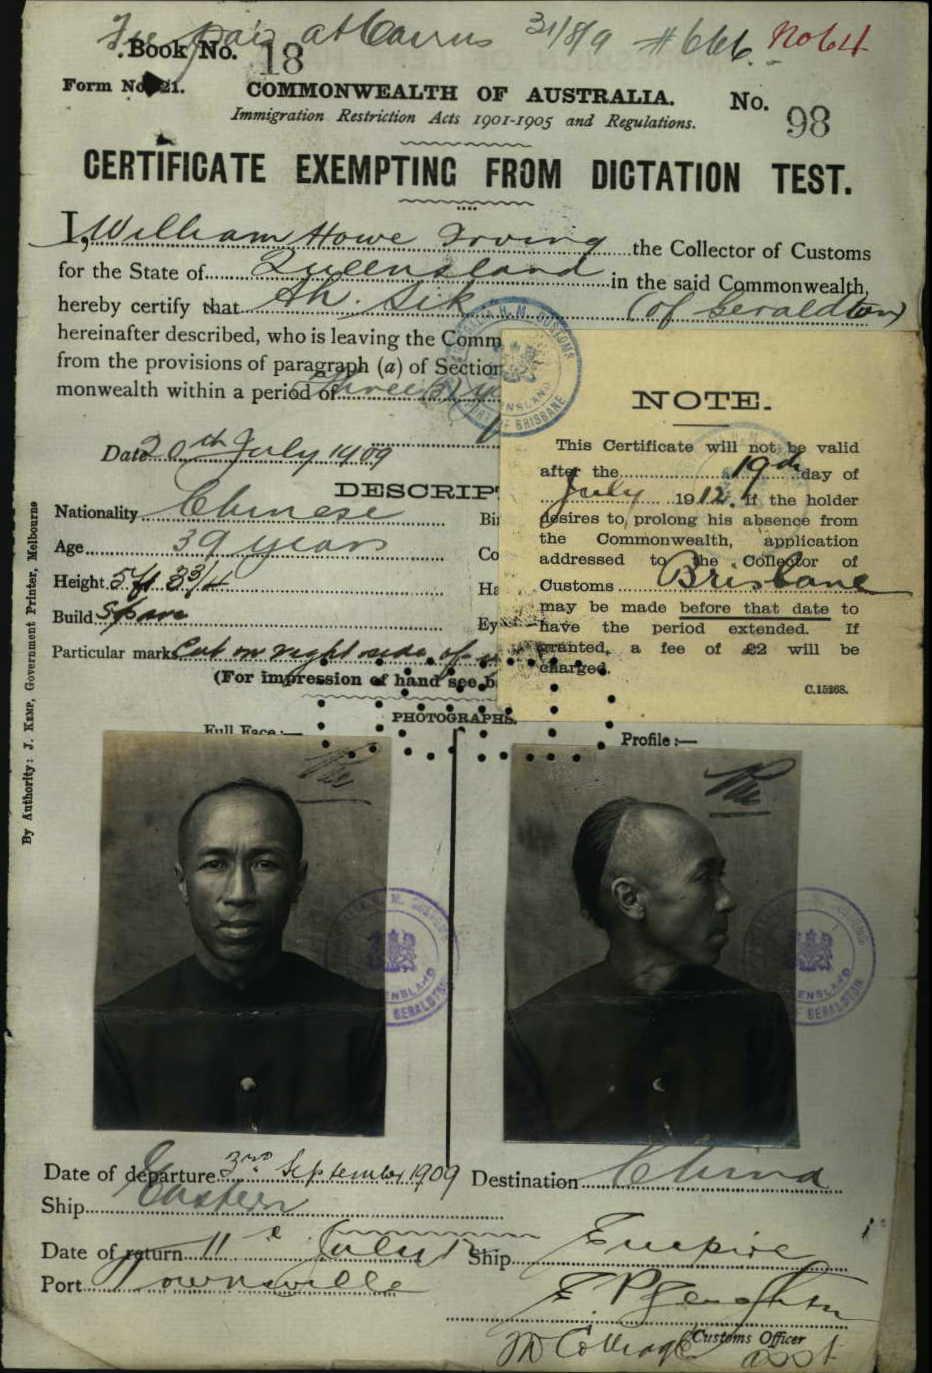 at Cairns 31/8/9 #666. No 64
Book No. 18
Form No. 21.
COMMONWEALTH OF AUSTRALIA.
No. 98
Immigration Restriction Acts 1901-1905 and Regulations.
CERTIFICATE EXEMPTING FROM DICTATION TEST.
I, William Howe Irving the Collector of Customs
for the State of Queensland in the said Commonwealth,
hereby certify that Ah. Sik (of Geraldton)
hereinafter described, who is leaving the Comm
from the provisions of paragraph (a) of Section
monwealth within a period of Three (3) y
Date 20th July 1909
DESCRIPT
Nationality Chinese
Bi
Age 39 years
Co
Height 5 ft 3 3/4
Ha
Build Spare
Ey
Particular marks Cut on right side of
(For impression of hand see b
NOTE.
This Certificate will not be valid
after the 19th day of
July 1912. If the holder
desires to prolong his absence from
the Commonwealth, application
addressed to the Collector of
Customs Brisbane
may be made before that date to
have the period extended. If
granted, a fee of £2 will be
charged.
C.15268.
PHOTOGRAPHS.
Full Face :—
Profile :—
By Authority: J. KEMP, Government Printer, Melbourne
H. M. CUSTOMS
QUEENSLAND
PORT OF BRISBANE
ENSLAND
OF GERALDTON
ENSLAND
OF GERALDTON
Date of departure 3rd September 1909 Destination China
Ship Eastern
Date of return 11th July Ship Empire
Port Townsville
Customs Officer
asst